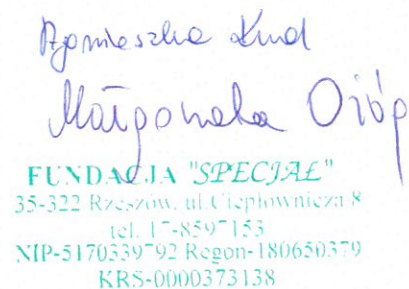 Agnieszka Kud
Małgorzata Ożóg
FUNDACJA "SPECJAŁ"
35-322 Rzeszów, ul.Ciepłownicza 8
tel. 17-8597153
NIP-5170339792 Regon-180650379
KRS-0000373138